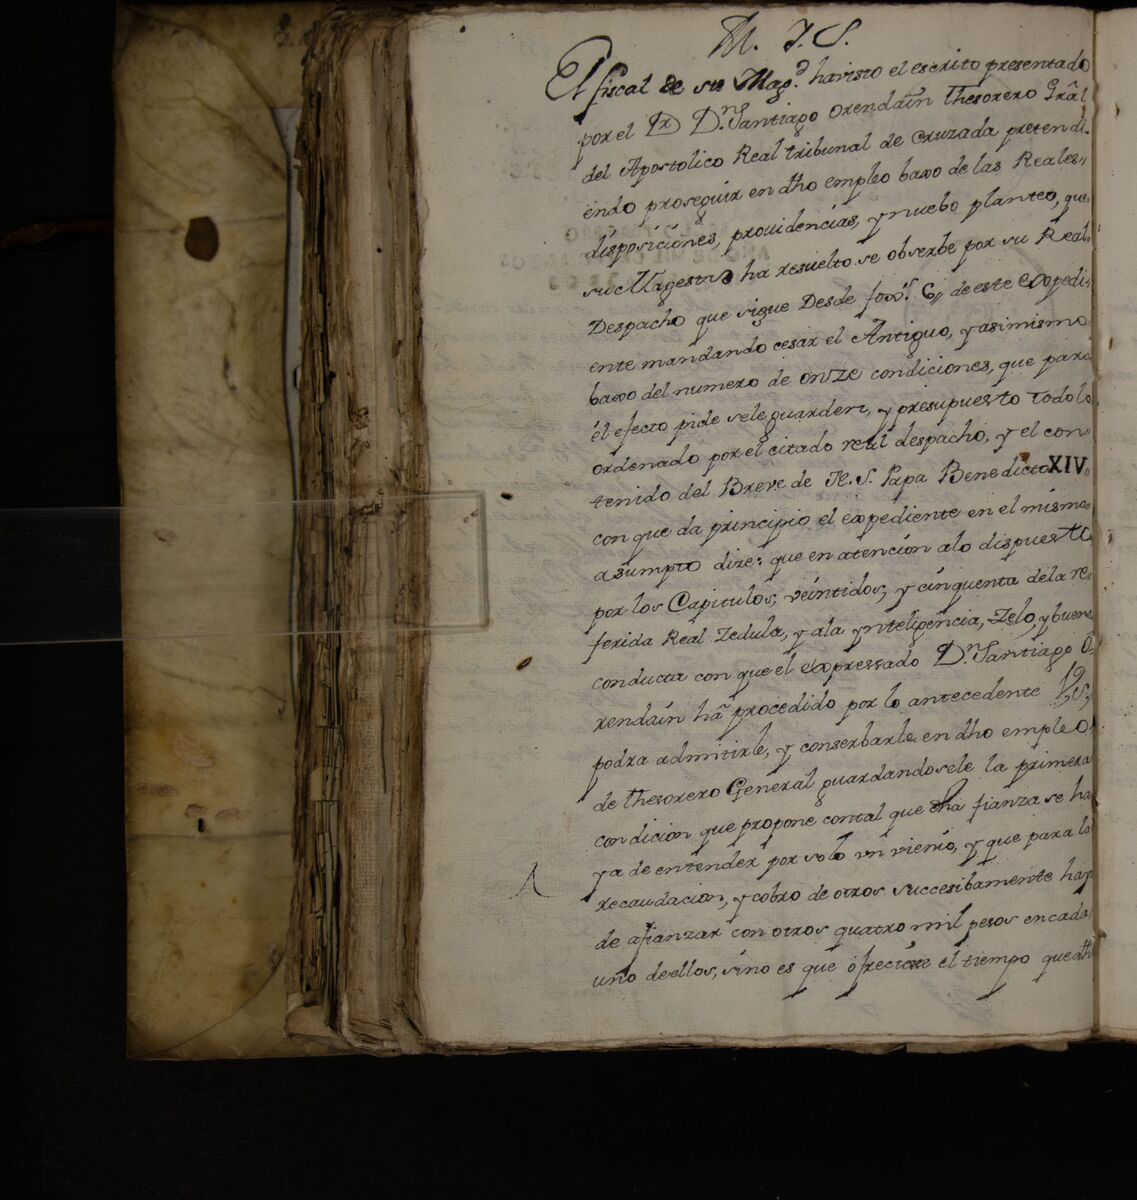 M. I. S.
El fiscal de su Mag.d ha visto el escrito presentado
por el Dr D.n Santiago Orendaín Thesorero Grãl
del Apostolico Real tribunal de Cruzada pretendi-
endo proseguir en dho empleo baxo de las Reales,,
disposiciones, providencias, y nuebo planteo, que
su Magestad ha resuelto se observe por su Real
Despacho que sigue Desde fox.s 6,, de este expedi,,
ente mandando cesar el Antiguo, y asimismo
baxo del numero de onze condiciones, que para
él efecto pide sele guarden, y presupuesto todo lo
ordenado por el citado real despacho, y el con,,
tenido del Breve de N. S. Papa Benedicto XIV,,
con que da principio el expediente en el mismo
asumpto dize: que en atención alo dispuesto
por los Capitulos, veintidos, y cinquenta dela re,,
ferida Real Zedula, y ala ynteligencia, Zelo, y buena
conducta con que el expressado D.n Santiago O,,
rendaín hã procedido por lo antecedente VS,,
podra admitirle, y conserbarle en dho empleo
de thesorero General guardandosele la primera
condicion que propone contal que dha fianza se ha
ya de entender por solo un vienio, y que para la
recaudacion, y cobro de otros succesibamente haya
de afianzar con otros quatro mil pesos en cada
uno deellos, sino es que ofreciere el tiempo que dho